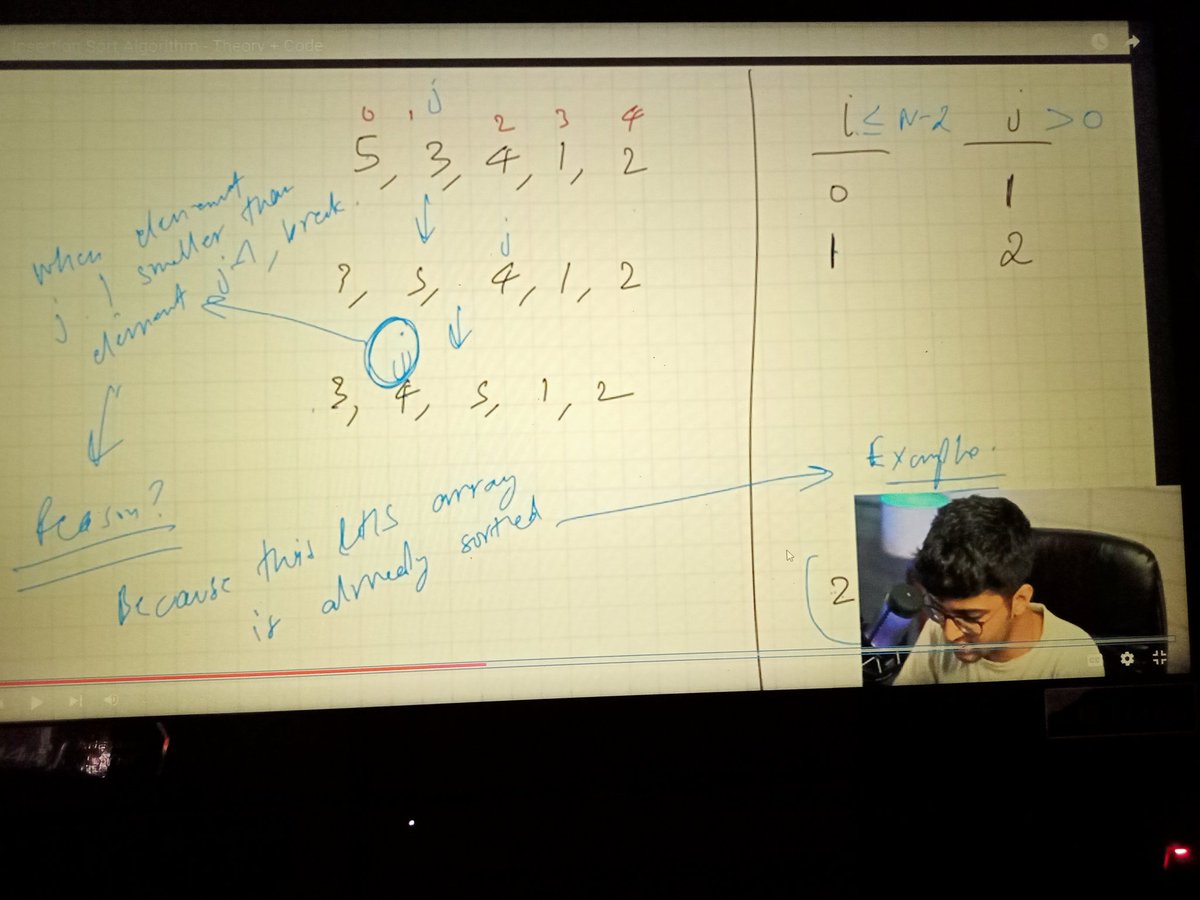 Insertion Sort Algorithm - Theory + Code
j
0 1 2 3 4
5, 3, 4, 1, 2
j
3, 5, 4, 1, 2
j
3, 4, 5, 1, 2
when element
j smaller than
element j-1, break.
Reason?
Because this LHS array
is already sorted
i ≤ N-2 j > 0
0 1
1 2
Example.
2